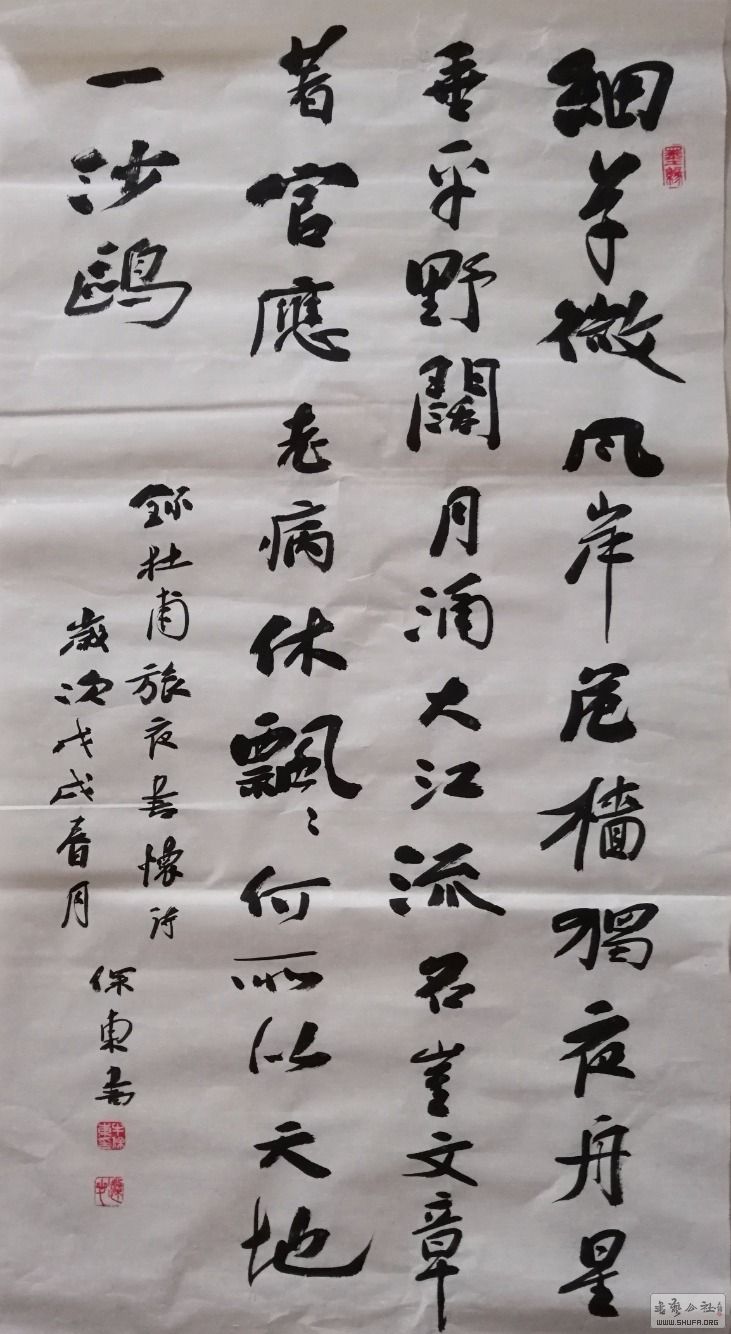 墨緣
細草微风岸危檣獨夜舟星
垂平野闊月涌大江流名豈文章
著官應老病休飄〻何所似天地
一沙鷗
録杜甫旅夜書懷詩
歲次戊戌春月
保東書
書藝公社
WWW.SHUFA.ORG